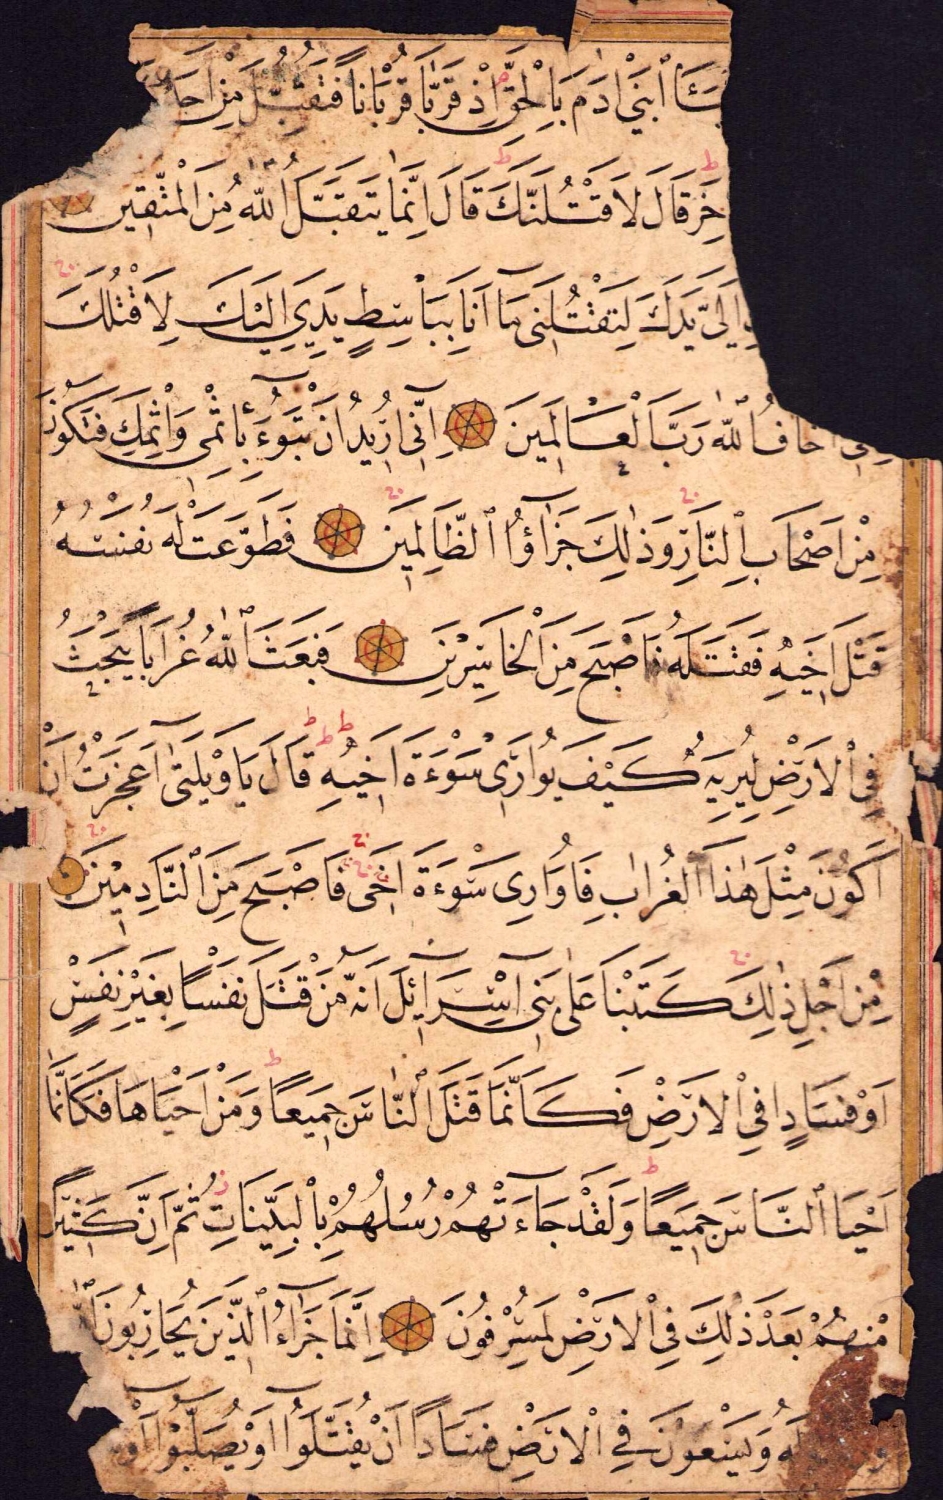 نَبَأَ ٱبْنَيْ اٰدَمَ بِالْحَقِّ اِذْ قَرَّبَا قُرْبَانًا فَتُقُبِّلَ مِنْ اَحَدِ
خَرِ قَالَ لَاَقْتُلَنَّكَ قَالَ اِنَّمَا يَتَقَبَّلُ اللّٰهُ مِنَ الْمُتَّقِينَ
اِلَيَّ يَدَكَ لِتَقْتُلَنِي مَا اَنَا بِبَاسِطٍ يَدِيَ اِلَيْكَ لِاَقْتُلَكَ
اِنِّي اَخَافُ اللّٰهَ رَبَّ الْعَالَمِينَ اِنِّي اُرِيدُ اَنْ تَبُوءَ بِاِثْمِي وَاِثْمِكَ فَتَكُونَ
مِنْ اَصْحَابِ النَّارِ وَذٰلِكَ جَزَاؤُا الظَّالِمِينَ فَطَوَّعَتْ لَهُ نَفْسُهُ
قَتْلَ اَخِيهِ فَقَتَلَهُ فَاَصْبَحَ مِنَ الْخَاسِرِينَ فَبَعَثَ اللّٰهُ غُرَابًا يَبْحَثُ
فِي الْاَرْضِ لِيُرِيَهُ كَيْفَ يُوَارِي سَوْءَةَ اَخِيهِ قَالَ يَا وَيْلَتٰى اَعَجَزْتُ اَنْ
اَكُونَ مِثْلَ هٰذَا الْغُرَابِ فَاُوَارِيَ سَوْءَةَ اَخِي فَاَصْبَحَ مِنَ النَّادِمِينَ
مِنْ اَجْلِ ذٰلِكَ كَتَبْنَا عَلٰى بَنِي اِسْرَائِلَ اَنَّهُ مَنْ قَتَلَ نَفْسًا بِغَيْرِ نَفْسٍ
اَوْ فَسَادٍ فِي الْاَرْضِ فَكَاَنَّمَا قَتَلَ النَّاسَ جَمِيعًا وَمَنْ اَحْيَاهَا فَكَاَنَّمَا
اَحْيَا النَّاسَ جَمِيعًا وَلَقَدْ جَاءَتْهُمْ رُسُلُهُمْ بِالْبَيِّنَاتِ ثُمَّ اِنَّ كَثِيرًا
مِنْهُمْ بَعْدَ ذٰلِكَ فِي الْاَرْضِ لَمُسْرِفُونَ اِنَّمَا جَزَاءُ الَّذِينَ يُحَارِبُونَ
وَيَسْعَوْنَ فِي الْاَرْضِ فَسَادًا اَنْ يُقَتَّلُوا اَوْ يُصَلَّبُوا اَوْ